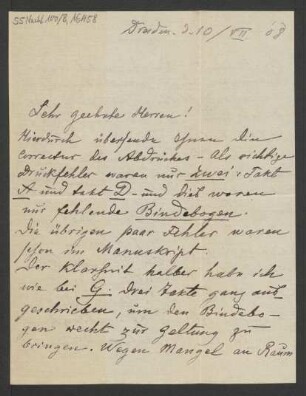 55 Nachl 100/B, 16458
Dresden. d. 10/VII 08
Sehr geehrte Herren!
Hierdurch übersende Ihnen die
Correctur des Abdruckes - Als richtige
Druckfehler waren nur zwei: Takt
A und takt D - und dies waren
nur fehlende Bindebogen.
Die übrigen paar Fehler waren
schon im Manuskript.
Der Klarheit halber habe ich
wie bei G. drei Takte ganz aus
geschrieben, um den Bindebo-
gen recht zur Geltung zu
bringen. Wegen Mangel an Raum